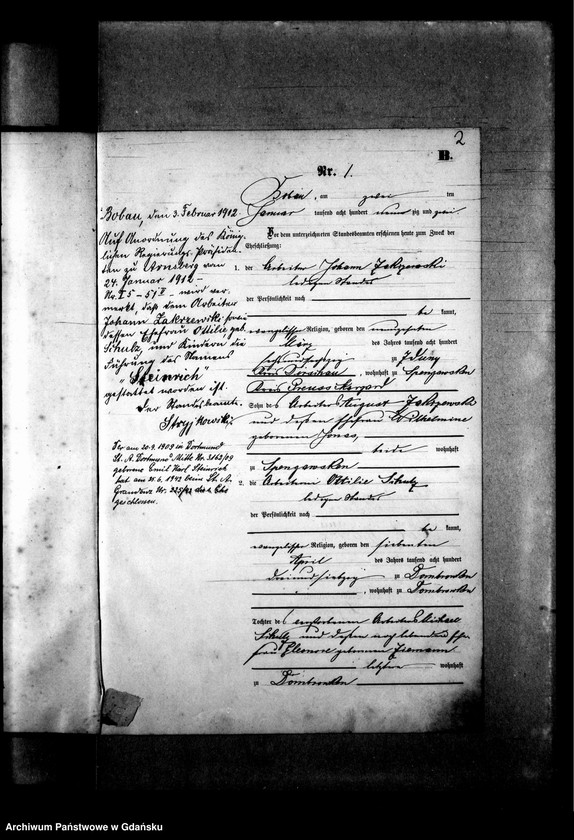 2
B.
Nr. 1.
Bobau, am zwei ten
Januar tausend acht hundert neun zig und zwei
Vor dem unterzeichneten Standesbeamten erschienen heute zum Zweck der
Eheschließung:
1. der Arbeiter Johann Zakrzewski
ledigen Standes
der Persönlichkeit nach
be kannt,
evangelischer Religion, geboren den
März des Jahres tausend acht hundert
sechsundsechzig zu Zduny
Kreis Dirschau, wohnhaft zu Spengawsken
Kreis Preuss. Stargard
Sohn des Arbeiters August Zakrzewski
und dessen Ehefrau Wilhelmine
geborenen Jonas,
beide wohnhaft
zu Spengawsken
2. die Arbeiterin Ottilie Schulz
ledigen Standes
der Persönlichkeit nach
be kannt,
evangelischer Religion, geboren den siebenten
April des Jahres tausend acht hundert
dreiundsiebzig zu Dombrowken
, wohnhaft zu Dombrowken
Tochter des verstorbenen Arbeiters Michael
Schulz und dessen noch lebenden Ehe-
frau Eleonore geborenen Ziemann
letztere wohnhaft
zu Dombrowken
Bobau, den 3. Februar 1912.
Auf Anordnung des König-
lichen Regierungs-Präsiden-
ten zu Arnsberg vom
24. Januar 1912 -
Nr. I 5 - 51 - wird ver-
merkt, daß dem Arbeiter
Johann Zakrzewski sowie
dessen Ehefrau Ottilie geb.
Schulz und Kindern die
Führung des Namens
"Steinrich"
gestattet worden ist.
Der Standesbeamte.
Stryjkowski.
Der am 20.9.1909 in Dortmund
St. A. Dortmund Nr. 3162/09
geborene Emil Karl Steinrich
hat am 21.6.1942 beim St. A.
Graudenz Nr. 225/42 die Ehe
geschlossen.
Archiwum Państwowe w Gdańsku